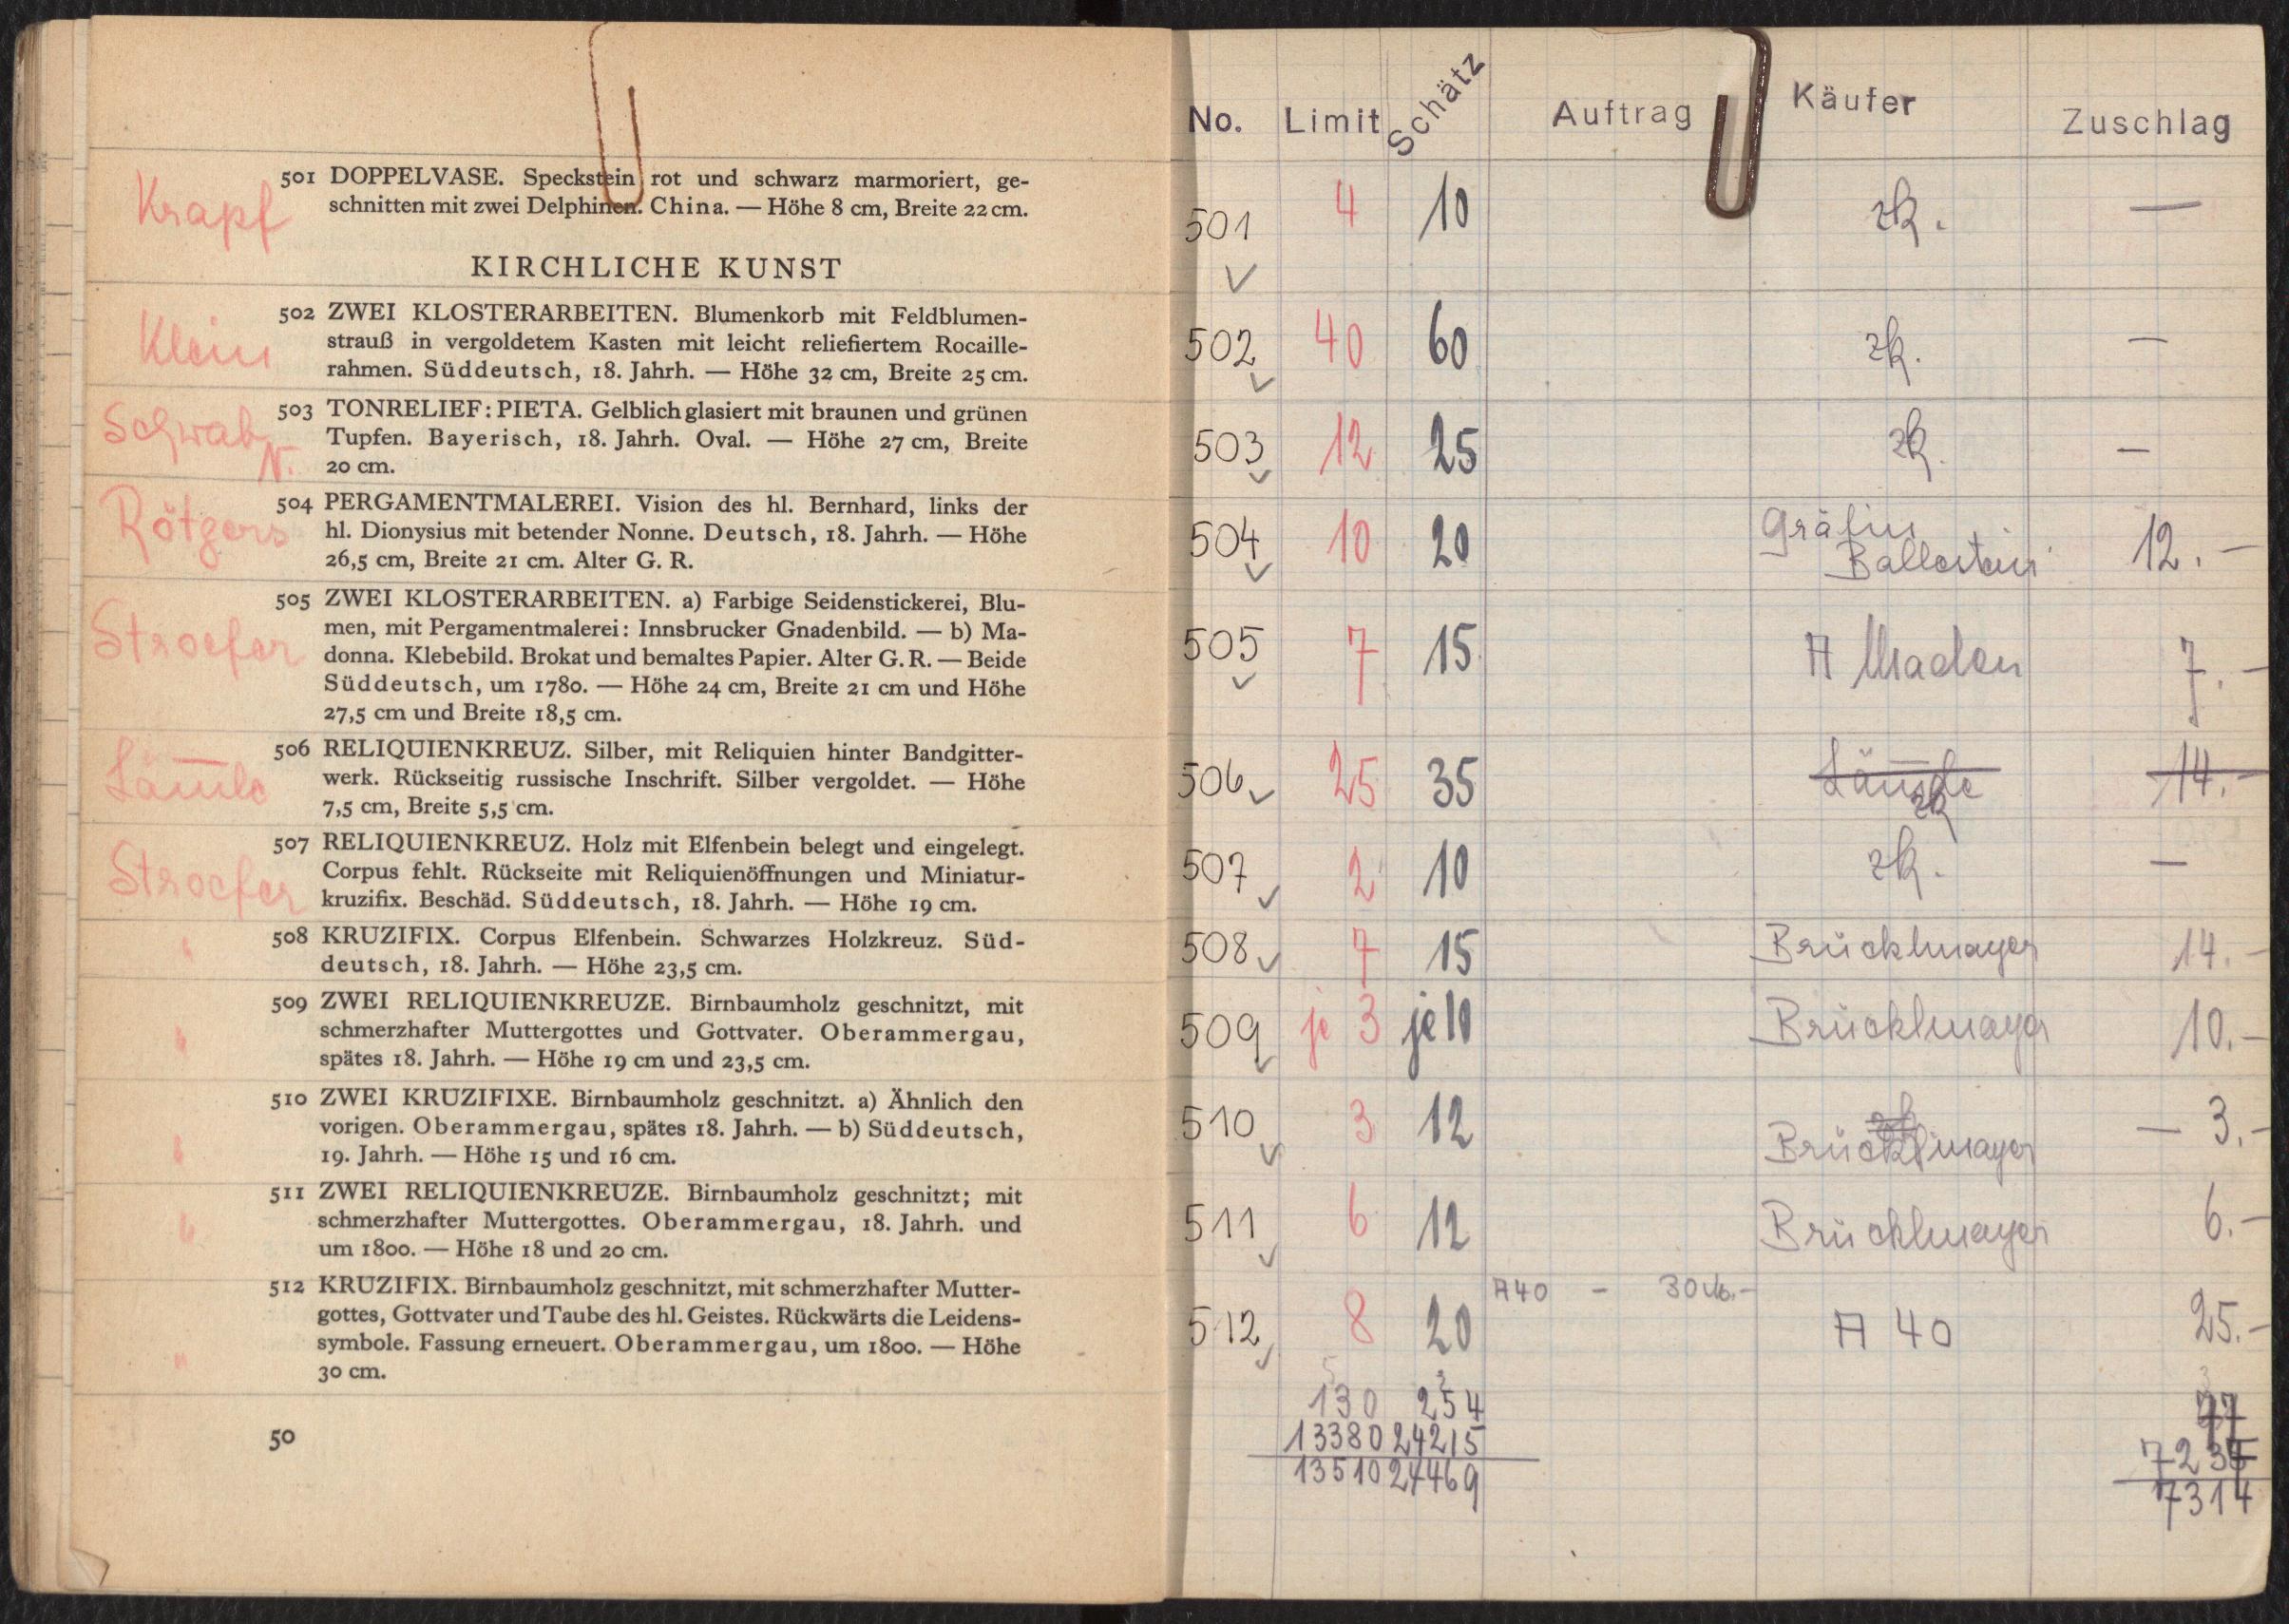 Krapf
501 DOPPELVASE. Speckstein rot und schwarz marmoriert, ge-
schnitten mit zwei Delphinen. China. — Höhe 8 cm, Breite 22 cm.
KIRCHLICHE KUNST
Klein
502 ZWEI KLOSTERARBEITEN. Blumenkorb mit Feldblumen-
strauß in vergoldetem Kasten mit leicht reliefiertem Rocaille-
rahmen. Süddeutsch, 18. Jahrh. — Höhe 32 cm, Breite 25 cm.
Schwab
N.
503 TONRELIEF: PIETA. Gelblich glasiert mit braunen und grünen
Tupfen. Bayerisch, 18. Jahrh. Oval. — Höhe 27 cm, Breite
20 cm.
Rötgers
504 PERGAMENTMALEREI. Vision des hl. Bernhard, links der
hl. Dionysius mit betender Nonne. Deutsch, 18. Jahrh. — Höhe
26,5 cm, Breite 21 cm. Alter G. R.
Stroefer
505 ZWEI KLOSTERARBEITEN. a) Farbige Seidenstickerei, Blu-
men, mit Pergamentmalerei: Innsbrucker Gnadenbild. — b) Ma-
donna. Klebebild. Brokat und bemaltes Papier. Alter G. R. — Beide
Süddeutsch, um 1780. — Höhe 24 cm, Breite 21 cm und Höhe
27,5 cm und Breite 18,5 cm.
Läm̅le
506 RELIQUIENKREUZ. Silber, mit Reliquien hinter Bandgitter-
werk. Rückseitig russische Inschrift. Silber vergoldet. — Höhe
7,5 cm, Breite 5,5 cm.
Stroefer
507 RELIQUIENKREUZ. Holz mit Elfenbein belegt und eingelegt.
Corpus fehlt. Rückseite mit Reliquienöffnungen und Miniatur-
kruzifix. Beschäd. Süddeutsch, 18. Jahrh. — Höhe 19 cm.
"
508 KRUZIFIX. Corpus Elfenbein. Schwarzes Holzkreuz. Süd-
deutsch, 18. Jahrh. — Höhe 23,5 cm.
"
509 ZWEI RELIQUIENKREUZE. Birnbaumholz geschnitzt, mit
schmerzhafter Muttergottes und Gottvater. Oberammergau,
spätes 18. Jahrh. — Höhe 19 cm und 23,5 cm.
"
510 ZWEI KRUZIFIXE. Birnbaumholz geschnitzt. a) Ähnlich den
vorigen. Oberammergau, spätes 18. Jahrh. — b) Süddeutsch,
19. Jahrh. — Höhe 15 und 16 cm.
"
511 ZWEI RELIQUIENKREUZE. Birnbaumholz geschnitzt; mit
schmerzhafter Muttergottes. Oberammergau, 18. Jahrh. und
um 1800. — Höhe 18 und 20 cm.
"
512 KRUZIFIX. Birnbaumholz geschnitzt, mit schmerzhafter Mutter-
gottes, Gottvater und Taube des hl. Geistes. Rückwärts die Leidens-
symbole. Fassung erneuert. Oberammergau, um 1800. — Höhe
30 cm.
50
No. Limit Schätz Auftrag Käufer Zuschlag
501 4 10 zk. —
502 40 60 zk. —
503 12 25 zk. —
504 10 20 Gräfin Ballestein 12.—
505 7 15 A 7.—
506 25 35 Läm̅le zk 14.—
507 2 10 zk. —
508 7 15 Brücklmayer 14.—
509 je 3 je 10 Brücklmayer 10.—
510 3 12 zk Brücklmayer — 3.—
511 6 12 Brücklmayer 6.—
A40 — 30
512 8 20 A 40 25.—
130 254 77
13380 24215 723
13510 24469 7314